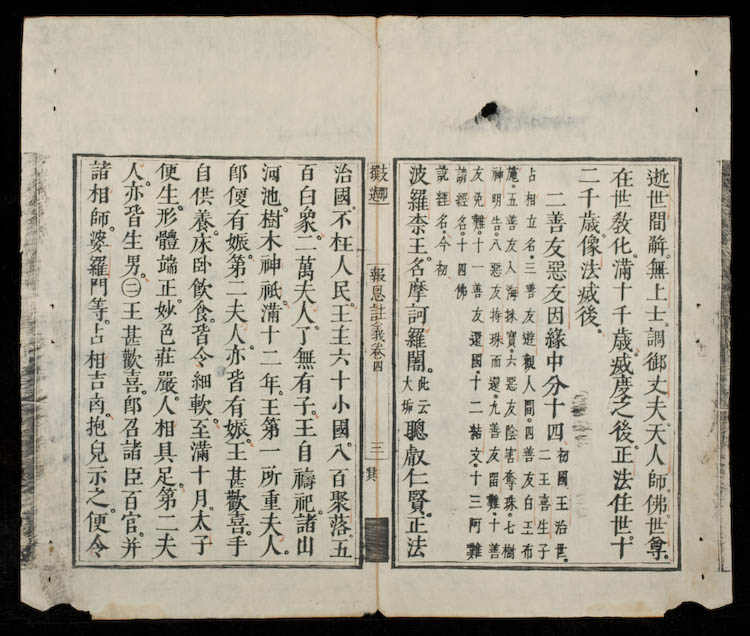 逝世間解。無上士。調御丈夫。天人師佛。世尊。
在世教化。滿十千歲。滅度之後。正法住世。十
二千歲。像法滅後。
二善友惡友因緣中分十四
初國王治世。
二王喜生子
占相立名。三善友遊觀人間。四善友白王布
施。五善友入海採寶。六惡友陰害奪珠。七樹
神明告。八惡友持珠而還。九善友留難。十善
友免難。十一善友還國。十二結文。十三阿難
請經名。十四佛
說經名。今初
波羅柰王。名摩訶羅闍。此云大 聰叡仁賢。正法
報恩註義卷四 三
治國。不枉人民。王主六十小國。八百聚落。五
百白象。二萬夫人。了無有子。王自禱祀。諸山
河池。樹木神祇。滿十二年。王第一所重夫人。
卽便有娠。第二夫人。亦皆有娠。王甚歡喜。手
自供養。床臥飲食。皆令細軟。至滿十月。太子
便生。形體端正。妙色莊嚴。人相具足。第二夫
人。亦皆生男。㊁王甚歡喜。卽召諸臣百官。并
諸相師。婆羅門等。占相吉凶。抱兒示之。便令